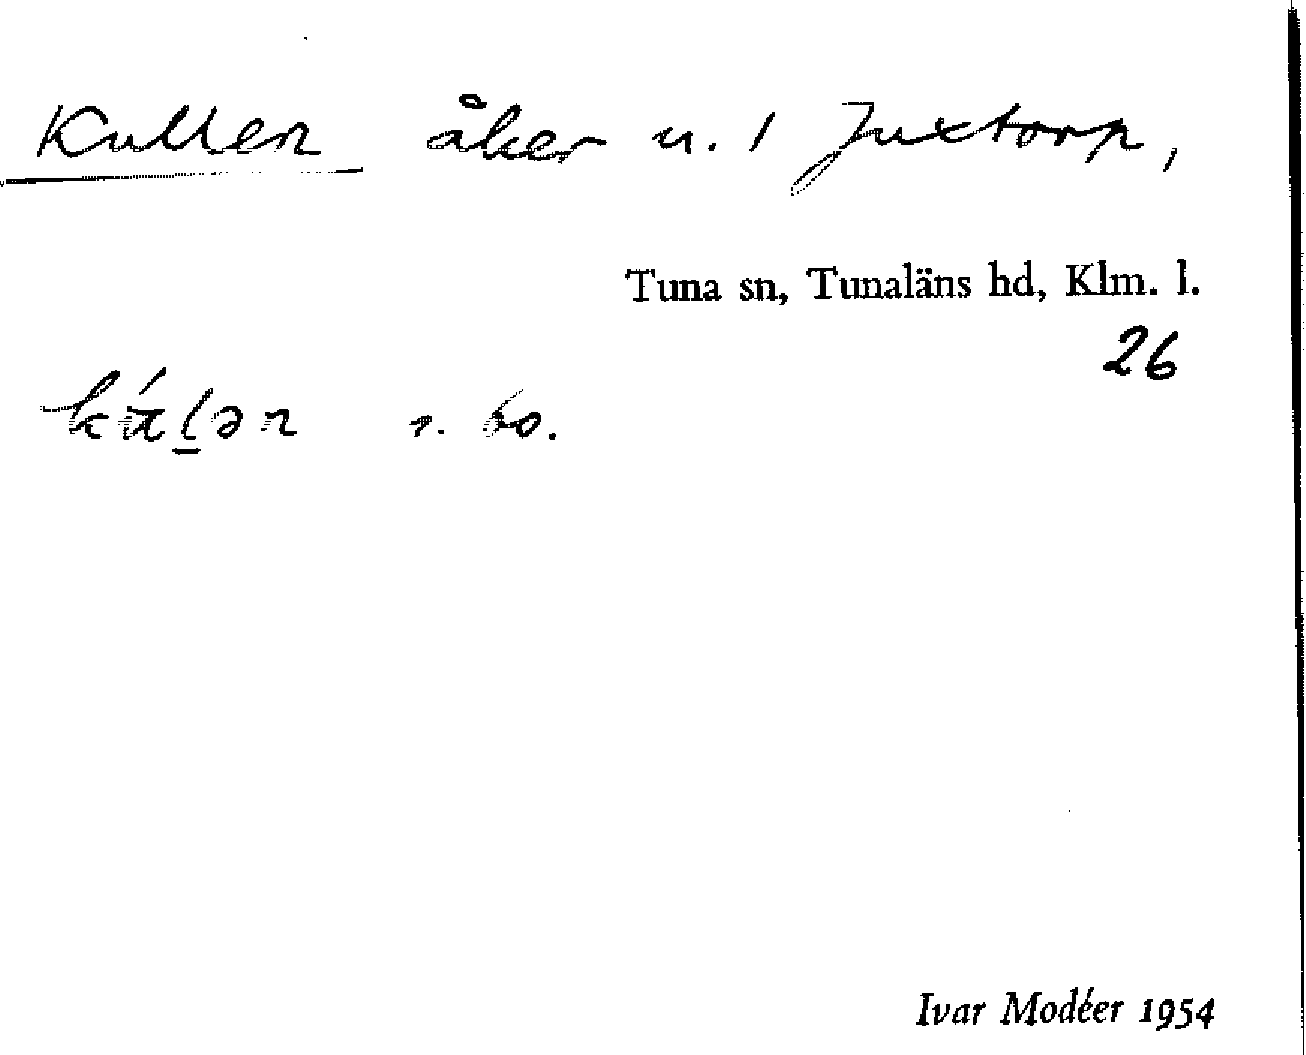 Kullen åker u. 1 Juxtorp,
Tuna sn, Tunaläns hd, Klm. l.
26
s. bo.
Ivar Modéer 1954